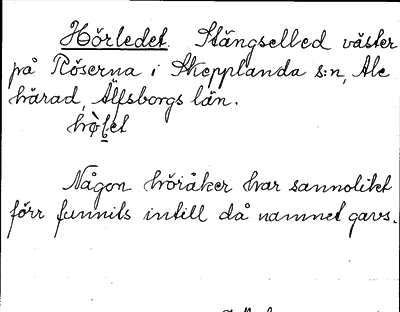 Hörledet. Stängselled väster
på Röserna i Skepplanda s:n, Ale
härad, Älfsborgs län.
hò̤let
Någon höråker har sannolikt
förr funnits intill då namnet gavs.